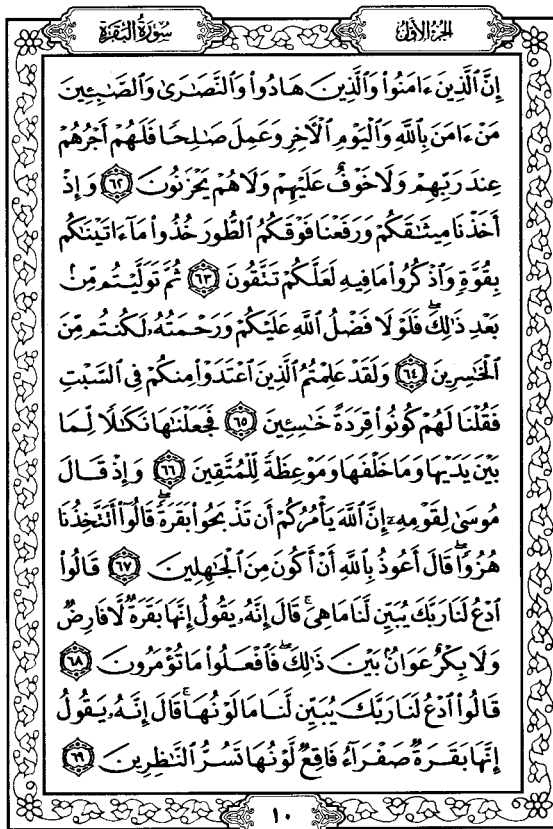 سُورَةُ البَقَرَةِ
الجُزْءُ الأَوَّلُ
إِنَّ ٱلَّذِينَ ءَامَنُوا۟ وَٱلَّذِينَ هَادُوا۟ وَٱلنَّصَٰرَىٰ وَٱلصَّٰبِـِٔينَ
مَنْ ءَامَنَ بِٱللَّهِ وَٱلْيَوْمِ ٱلْءَاخِرِ وَعَمِلَ صَٰلِحًا فَلَهُمْ أَجْرُهُمْ
عِندَ رَبِّهِمْ وَلَا خَوْفٌ عَلَيْهِمْ وَلَا هُمْ يَحْزَنُونَ ٦٢ وَإِذْ
أَخَذْنَا مِيثَٰقَكُمْ وَرَفَعْنَا فَوْقَكُمُ ٱلطُّورَ خُذُوا۟ مَآ ءَاتَيْنَٰكُم
بِقُوَّةٍ وَٱذْكُرُوا۟ مَا فِيهِ لَعَلَّكُمْ تَتَّقُونَ ٦٣ ثُمَّ تَوَلَّيْتُم مِّنۢ
بَعْدِ ذَٰلِكَ ۖ فَلَوْلَا فَضْلُ ٱللَّهِ عَلَيْكُمْ وَرَحْمَتُهُۥ لَكُنتُم مِّنَ
ٱلْخَٰسِرِينَ ٦٤ وَلَقَدْ عَلِمْتُمُ ٱلَّذِينَ ٱعْتَدَوْا۟ مِنكُمْ فِى ٱلسَّبْتِ
فَقُلْنَا لَهُمْ كُونُوا۟ قِرَدَةً خَٰسِـِٔينَ ٦٥ فَجَعَلْنَٰهَا نَكَٰلًا لِّمَا
بَيْنَ يَدَيْهَا وَمَا خَلْفَهَا وَمَوْعِظَةً لِّلْمُتَّقِينَ ٦٦ وَإِذْ قَالَ
مُوسَىٰ لِقَوْمِهِۦٓ إِنَّ ٱللَّهَ يَأْمُرُكُمْ أَن تَذْبَحُوا۟ بَقَرَةً ۖ قَالُوٓا۟ أَتَتَّخِذُنَا
هُزُوًا ۖ قَالَ أَعُوذُ بِٱللَّهِ أَنْ أَكُونَ مِنَ ٱلْجَٰهِلِينَ ٦٧ قَالُوا۟
ٱدْعُ لَنَا رَبَّكَ يُبَيِّن لَّنَا مَا هِىَ ۚ قَالَ إِنَّهُۥ يَقُولُ إِنَّهَا بَقَرَةٌ لَّا فَارِضٌ
وَلَا بِكْرٌ عَوَانٌۢ بَيْنَ ذَٰلِكَ ۖ فَٱفْعَلُوا۟ مَا تُؤْمَرُونَ ٦٨
قَالُوا۟ ٱدْعُ لَنَا رَبَّكَ يُبَيِّن لَّنَا مَا لَوْنُهَا ۚ قَالَ إِنَّهُۥ يَقُولُ
إِنَّهَا بَقَرَةٌ صَفْرَآءُ فَاقِعٌ لَّوْنُهَا تَسُرُّ ٱلنَّٰظِرِينَ ٦٩
١٠